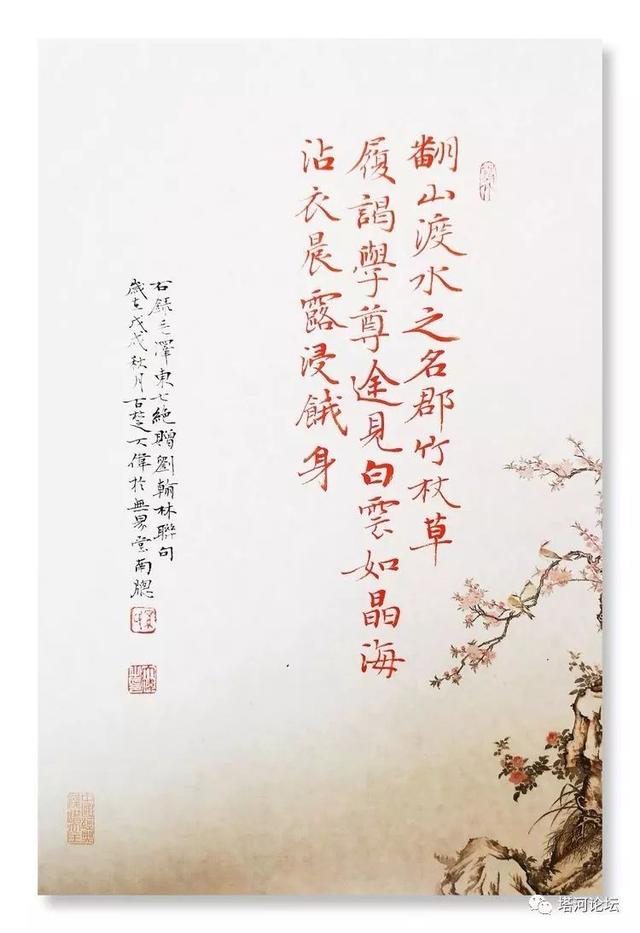 翻山渡水之名郡竹杖草
履謁學尊途見白雲如晶海
沾衣晨露浸餓身
右録毛澤東七絕贈劉翰林聯句
歲在戊戌秋月古楚大偉於無界堂南牕
塔河论坛